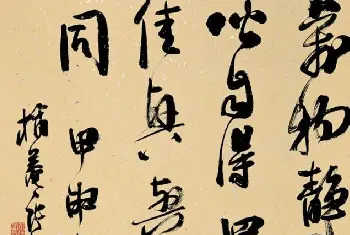 萬物靜
皆自得四
佳興與
同 甲申